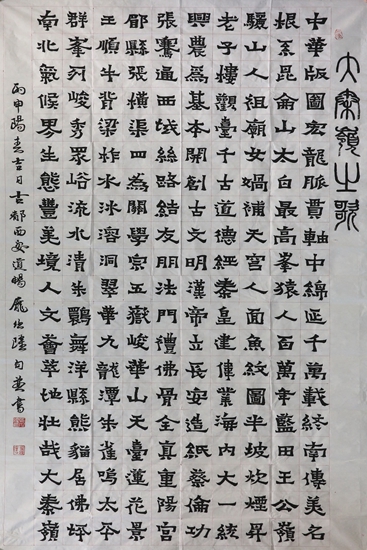 大秦嶺之歌
中華版圖宏龍脈貫軸中綿延千萬載終南傳美名
根系昆侖山太白最高峯猿人百萬年藍田王公嶺
驪山人祖廟女媧補天宮人面魚紋圖半坡炊煙昇
老子樓觀臺千古道德經秦皇建偉業海内大一統
興農爲基本開創古文明漢帝立長安造紙蔡倫功
張騫通西域絲路結友朋法門禮佛骨全真重陽宮
郿縣張橫渠四爲關學宗五嶽峻華山天臺蓮花景
王順牛背梁柞水冰溶洞翠華九龍潭朱雀鳴太平
群峯列峻秀眾峪流水清朱鹮舞洋縣熊貓居佛坪
南北氣候界生態豐美境人文薈萃地壯哉大秦嶺
丙申陽春吉日古都西安道暢龐 句 書